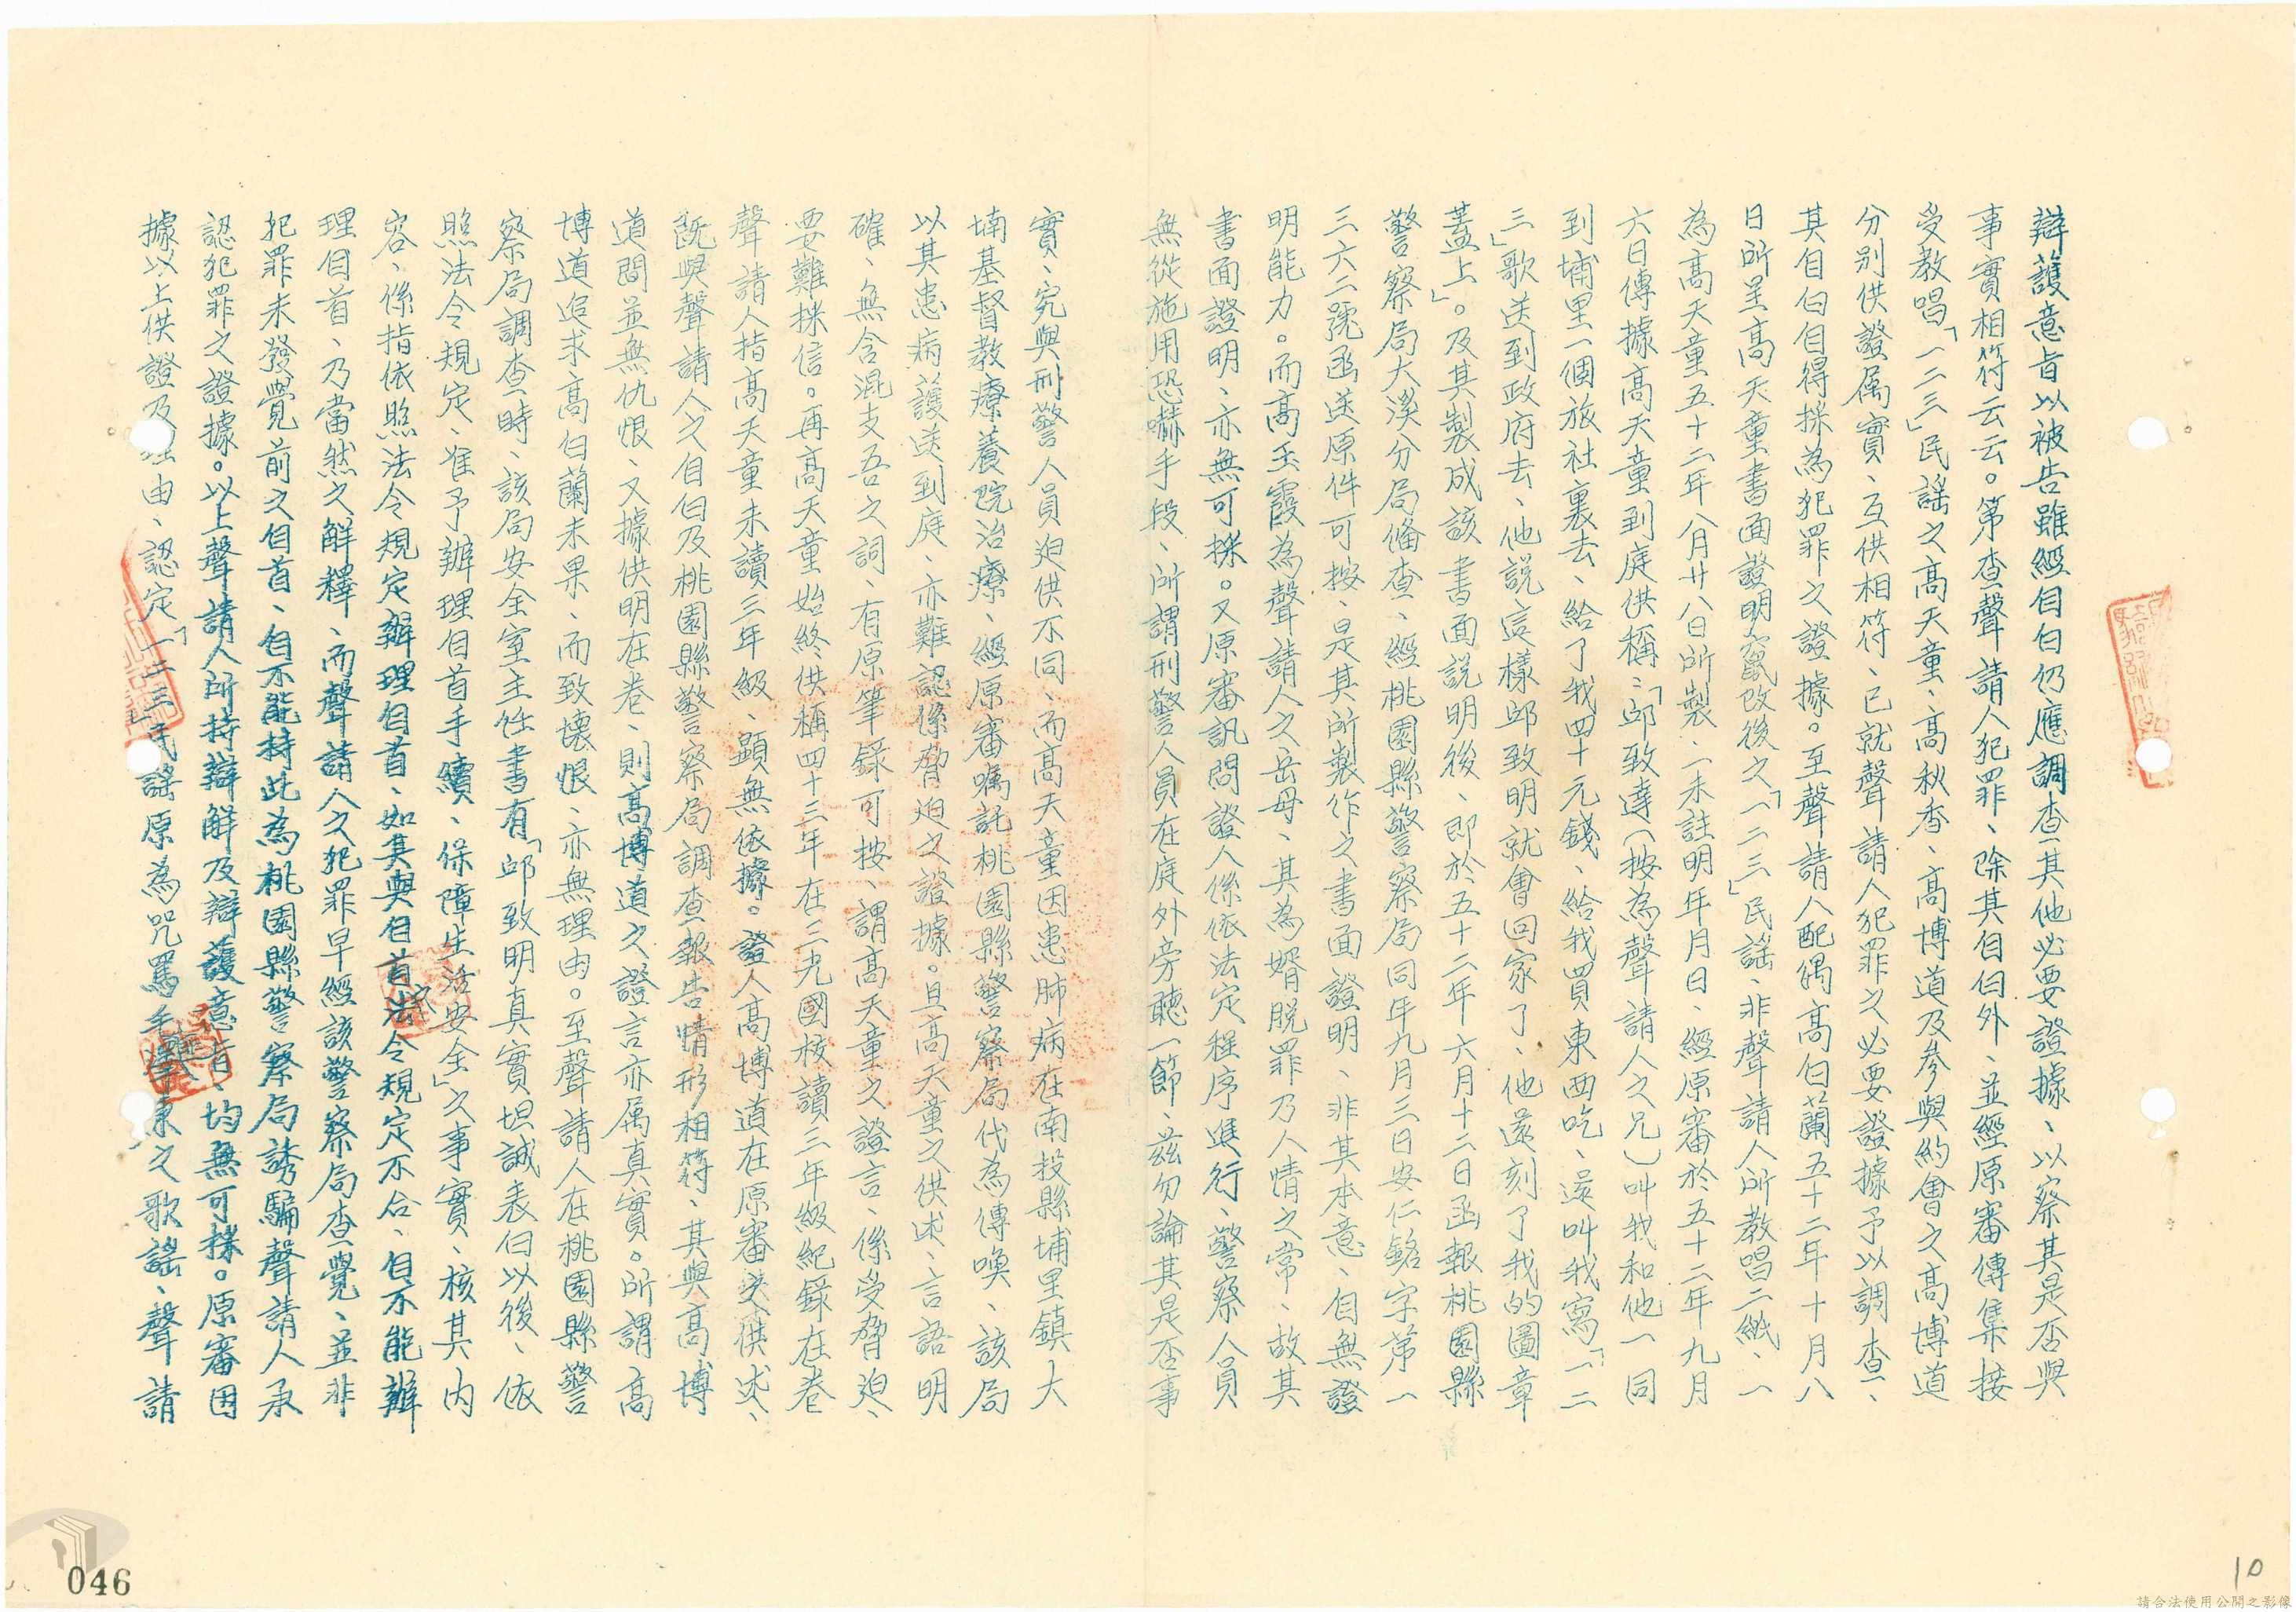 辯護意旨以被告雖經自白仍應調查其他必要證據、以察其是否與
事實相符云云。第查聲請人犯罪、除其自白外、並經原審傳集接
受教唱「一二三」民謠之高天童、高秋香、高博道及參與約會之高博道
分別供證属實、互供相符、已就聲請人犯罪之必要證據予以調查、
其自白自得採為犯罪之證據。至聲請人配偶高白蘭五十二年十月八
日所呈高天童書面證明竄改後之「一二三」民謠、非聲請人所教唱二紙、一
為高天童五十二年八月廿八日所製、一未註明年月日、經原審於五十二年九月
六日傳據高天童到庭供稱：「邱致達（按為聲請人之兄）叫我和他一同
到埔里一個旅社裏去、給了我四十元錢、給我買東西吃、還叫我寫「一二
三」歌送到政府去、他說這樣邱致明就會回家了、他還刻了我的圖章
蓋上」。及其製成該書面說明後、即於五十二年六月十二日函報桃園縣
警察局大溪分局偹查、經桃園縣警察局同年九月三日安仁銘字第一
三六二號函送原件可按、是其所製作之書面證明、非其本意、自無證
明能力。而高玉霞為聲請人之岳母、其為婿脱罪乃人情之常、故其
書面證明、亦無可採。又原審訊問證人係依法定程序進行、警察人員
無從施用恐嚇手段、所謂刑警人員在庭外旁聽一節、茲勿論其是否事
實、究與刑警人員迫供不同、而高天童因患肺病在南投縣埔里鎮大
埔基督教療養院治療、經原審囑託桃園縣警察局代為傳喚、該局
以其患病護送到庭、亦難認係脅迫之證據。且高天童之供述、言語明
確、無含混支吾之詞、有原筆錄可按、謂高天童之證言、係受脅迫、
要難採信。再高天童始終供稱四十三年在三光國校讀三年級紀錄在卷
聲請人指高天童未讀三年級、顯無依據。證人高博道在原審突供述、
既與聲請人之自白及桃園縣警察局調查報告情形相符、其與高博
道間並無仇恨、又據供明在卷、則高博道之證言亦属真實。所謂高
博道追求高白蘭未果、而致懷恨、亦無理由。至聲請人在桃園縣警
察局調查時、該局安全室主任書有「邱致明真實坦誠表白以後、依
照法令規定、准予辦理自首手續、保障生活安全」之事實、核其內
容、係指依照法令規定辦理自首、如其與自首法令規定不合、自不能辦
理自首、乃當然之解釋、而聲請人之犯罪早經該警察局查覺、並非
犯罪未發覺前之自首、自不能持此為桃園縣警察局誘騙聲請人承
認犯罪之證據。以上聲請人所持辯解及辯護意旨、均無可採。原審因
據以上供證及理由、認定「一二三」民謠原為咒罵毛澤東之歌謠、聲請
046
10
請合法使用公開之影像